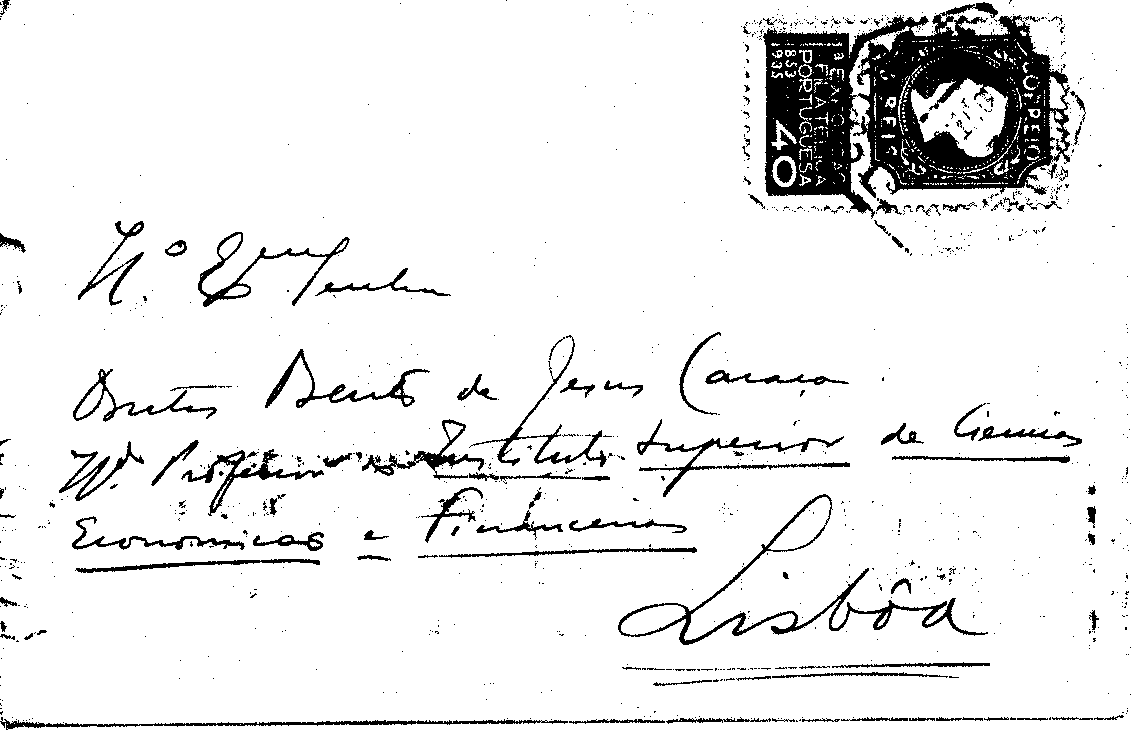 40
1ª EXPOSIÇÃO
FILATELICA
PORTUGUESA
1935
CORREIO
REIS
Exmo Senhor
Doutor Bento de Jesus Caraça
M.d. Professor do Instituto Superior de Ciencias
Economicas e Financeiras
Lisbôa